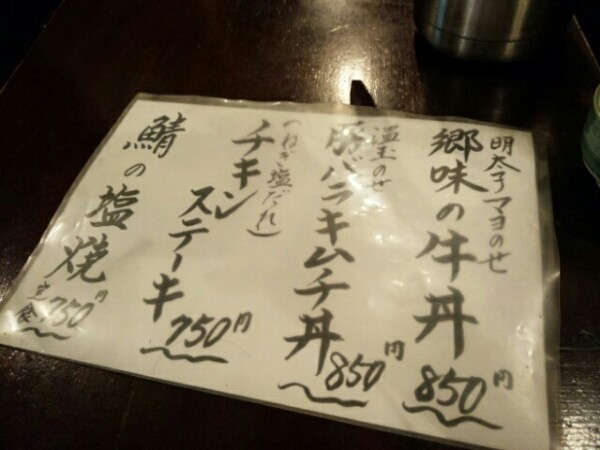 明太子マヨのせ
郷味の牛丼
850円
温玉のせ
豚バラキムチ丼
850円
(ねぎ塩だれ)
チキン
ステーキ
750円
鯖の塩焼
定食
750円